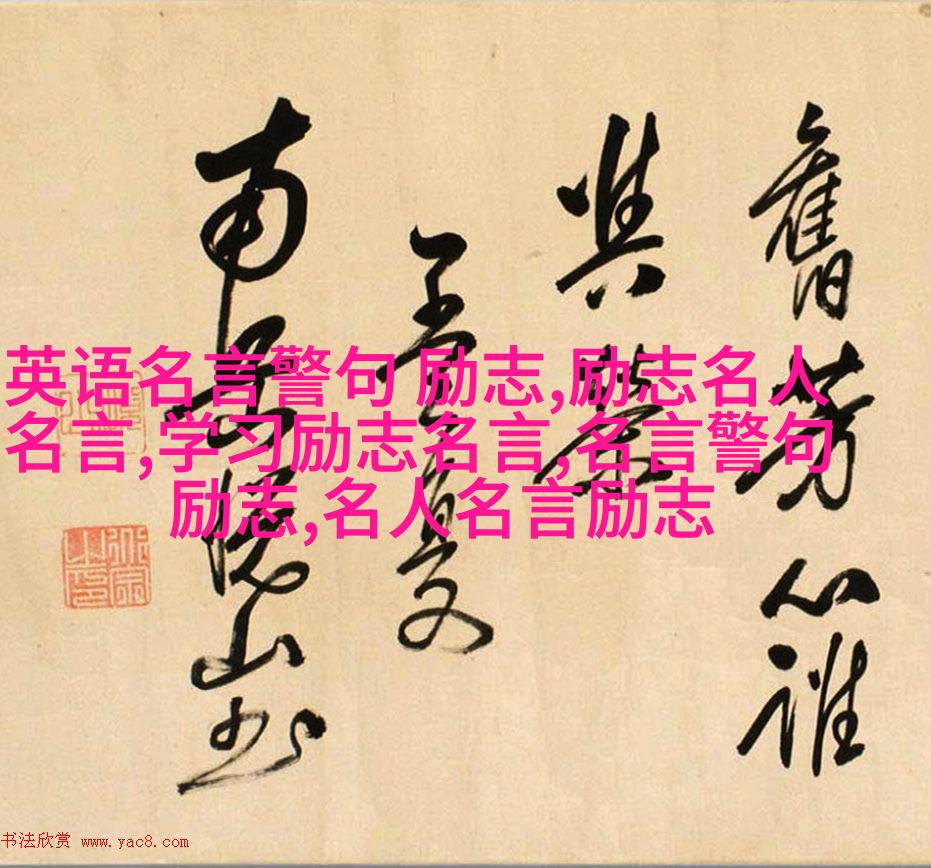 舊芳心誰
南岳悅山書
英语名言警句 励志,励志名人
名言,学习励志名言,名言警句
励志,名人名言励志
书法欣赏 www.yac8.com